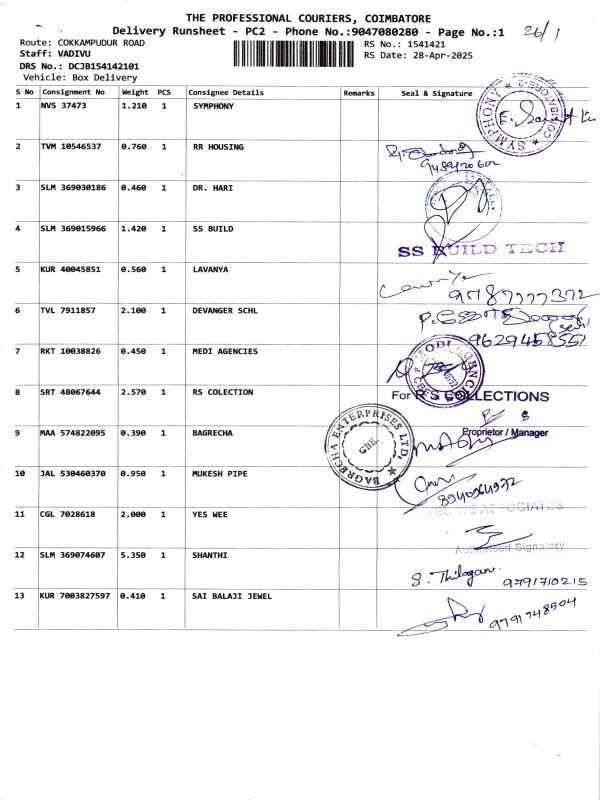 THE PROFESSIONAL COURIERS, COIMBATORE
Delivery Runsheet - PC2 - Phone No.:9047080280 - Page No.:1
26/1
Route: COKKAMPUDUR ROAD
RS No.: 1541421
Staff: VADIVU
RS Date: 28-Apr-2025
DRS No.: DCJB154142101
Vehicle: Box Delivery
S No Consignment No Weight PCS Consignee Details Remarks Seal & Signature
1 NVS 37473 1.210 1 SYMPHONY
SYMPHONY
2 TVM 10546537 0.760 1 RR HOUSING
3 SLM 369030186 0.460 1 DR. HARI
4 SLM 369015966 1.420 1 SS BUILD
SS BUILD TECH
5 KUR 40045851 0.560 1 LAVANYA
9787777372
6 TVL 7911857 2.100 1 DEVANGER SCHL
9629458557
7 RKT 10038826 0.450 1 MEDI AGENCIES
8 SRT 48067644 2.570 1 RS COLECTION
For R S COLLECTIONS
Proprietor / Manager
9 MAA 574822095 0.390 1 BAGRECHA
BAGRECHA ENTERPRISES LTD.
CBE.
10 JAL 530460370 0.950 1 MUKESH PIPE
8940964932
11 CGL 7028618 2.000 1 YES WEE
ASSOCIATES
Authorised Signatory
12 SLM 369074607 5.350 1 SHANTHI
S. Thilagan. 9791710215
13 KUR 7003827597 0.410 1 SAI BALAJI JEWEL
9791748504